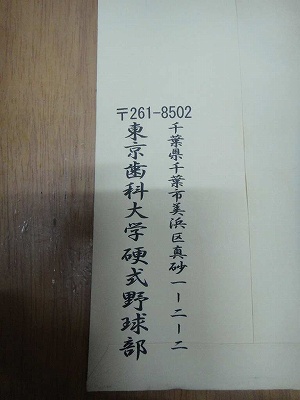 〒261-8502
千葉県千葉市美浜区真砂一ー二ー二
東京歯科大学硬式野球部